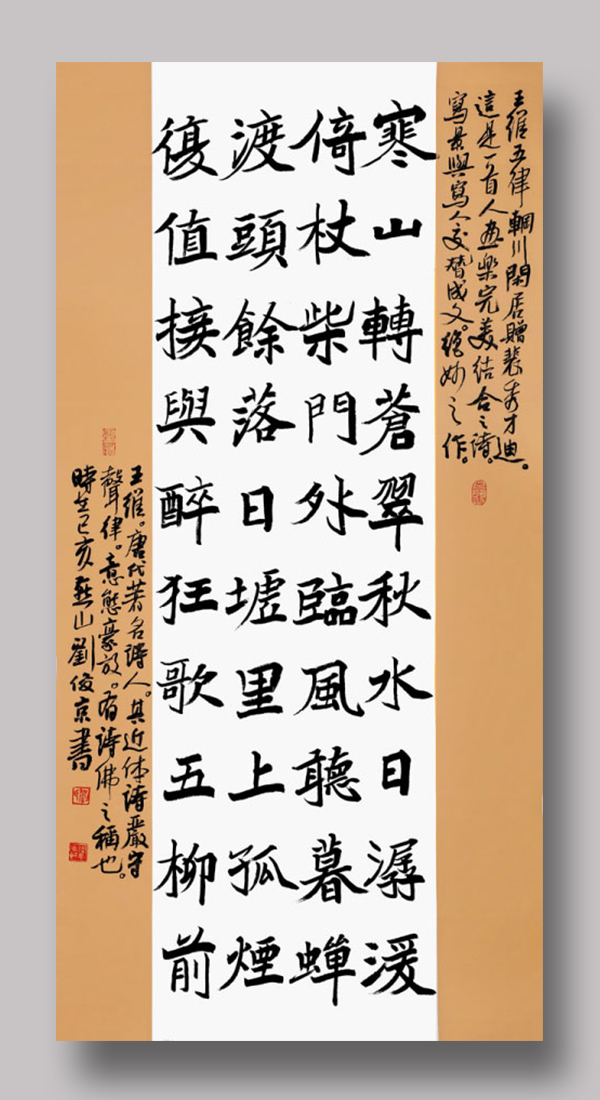 王維五律輞川閑居贈裴秀才迪。
這是一首人畫樂完美結合之詩。
寫景與寫人交替成文。絕妙之作。
寒山轉蒼翠秋水日潺湲
倚杖柴門外臨風聽暮蟬
渡頭餘落日墟里上孤煙
復值接與醉狂歌五柳前
王維。唐代著名詩人。其近体詩嚴守
聲律。意態豪放。有詩佛之稱也。
時在己亥燕山劉俊京書